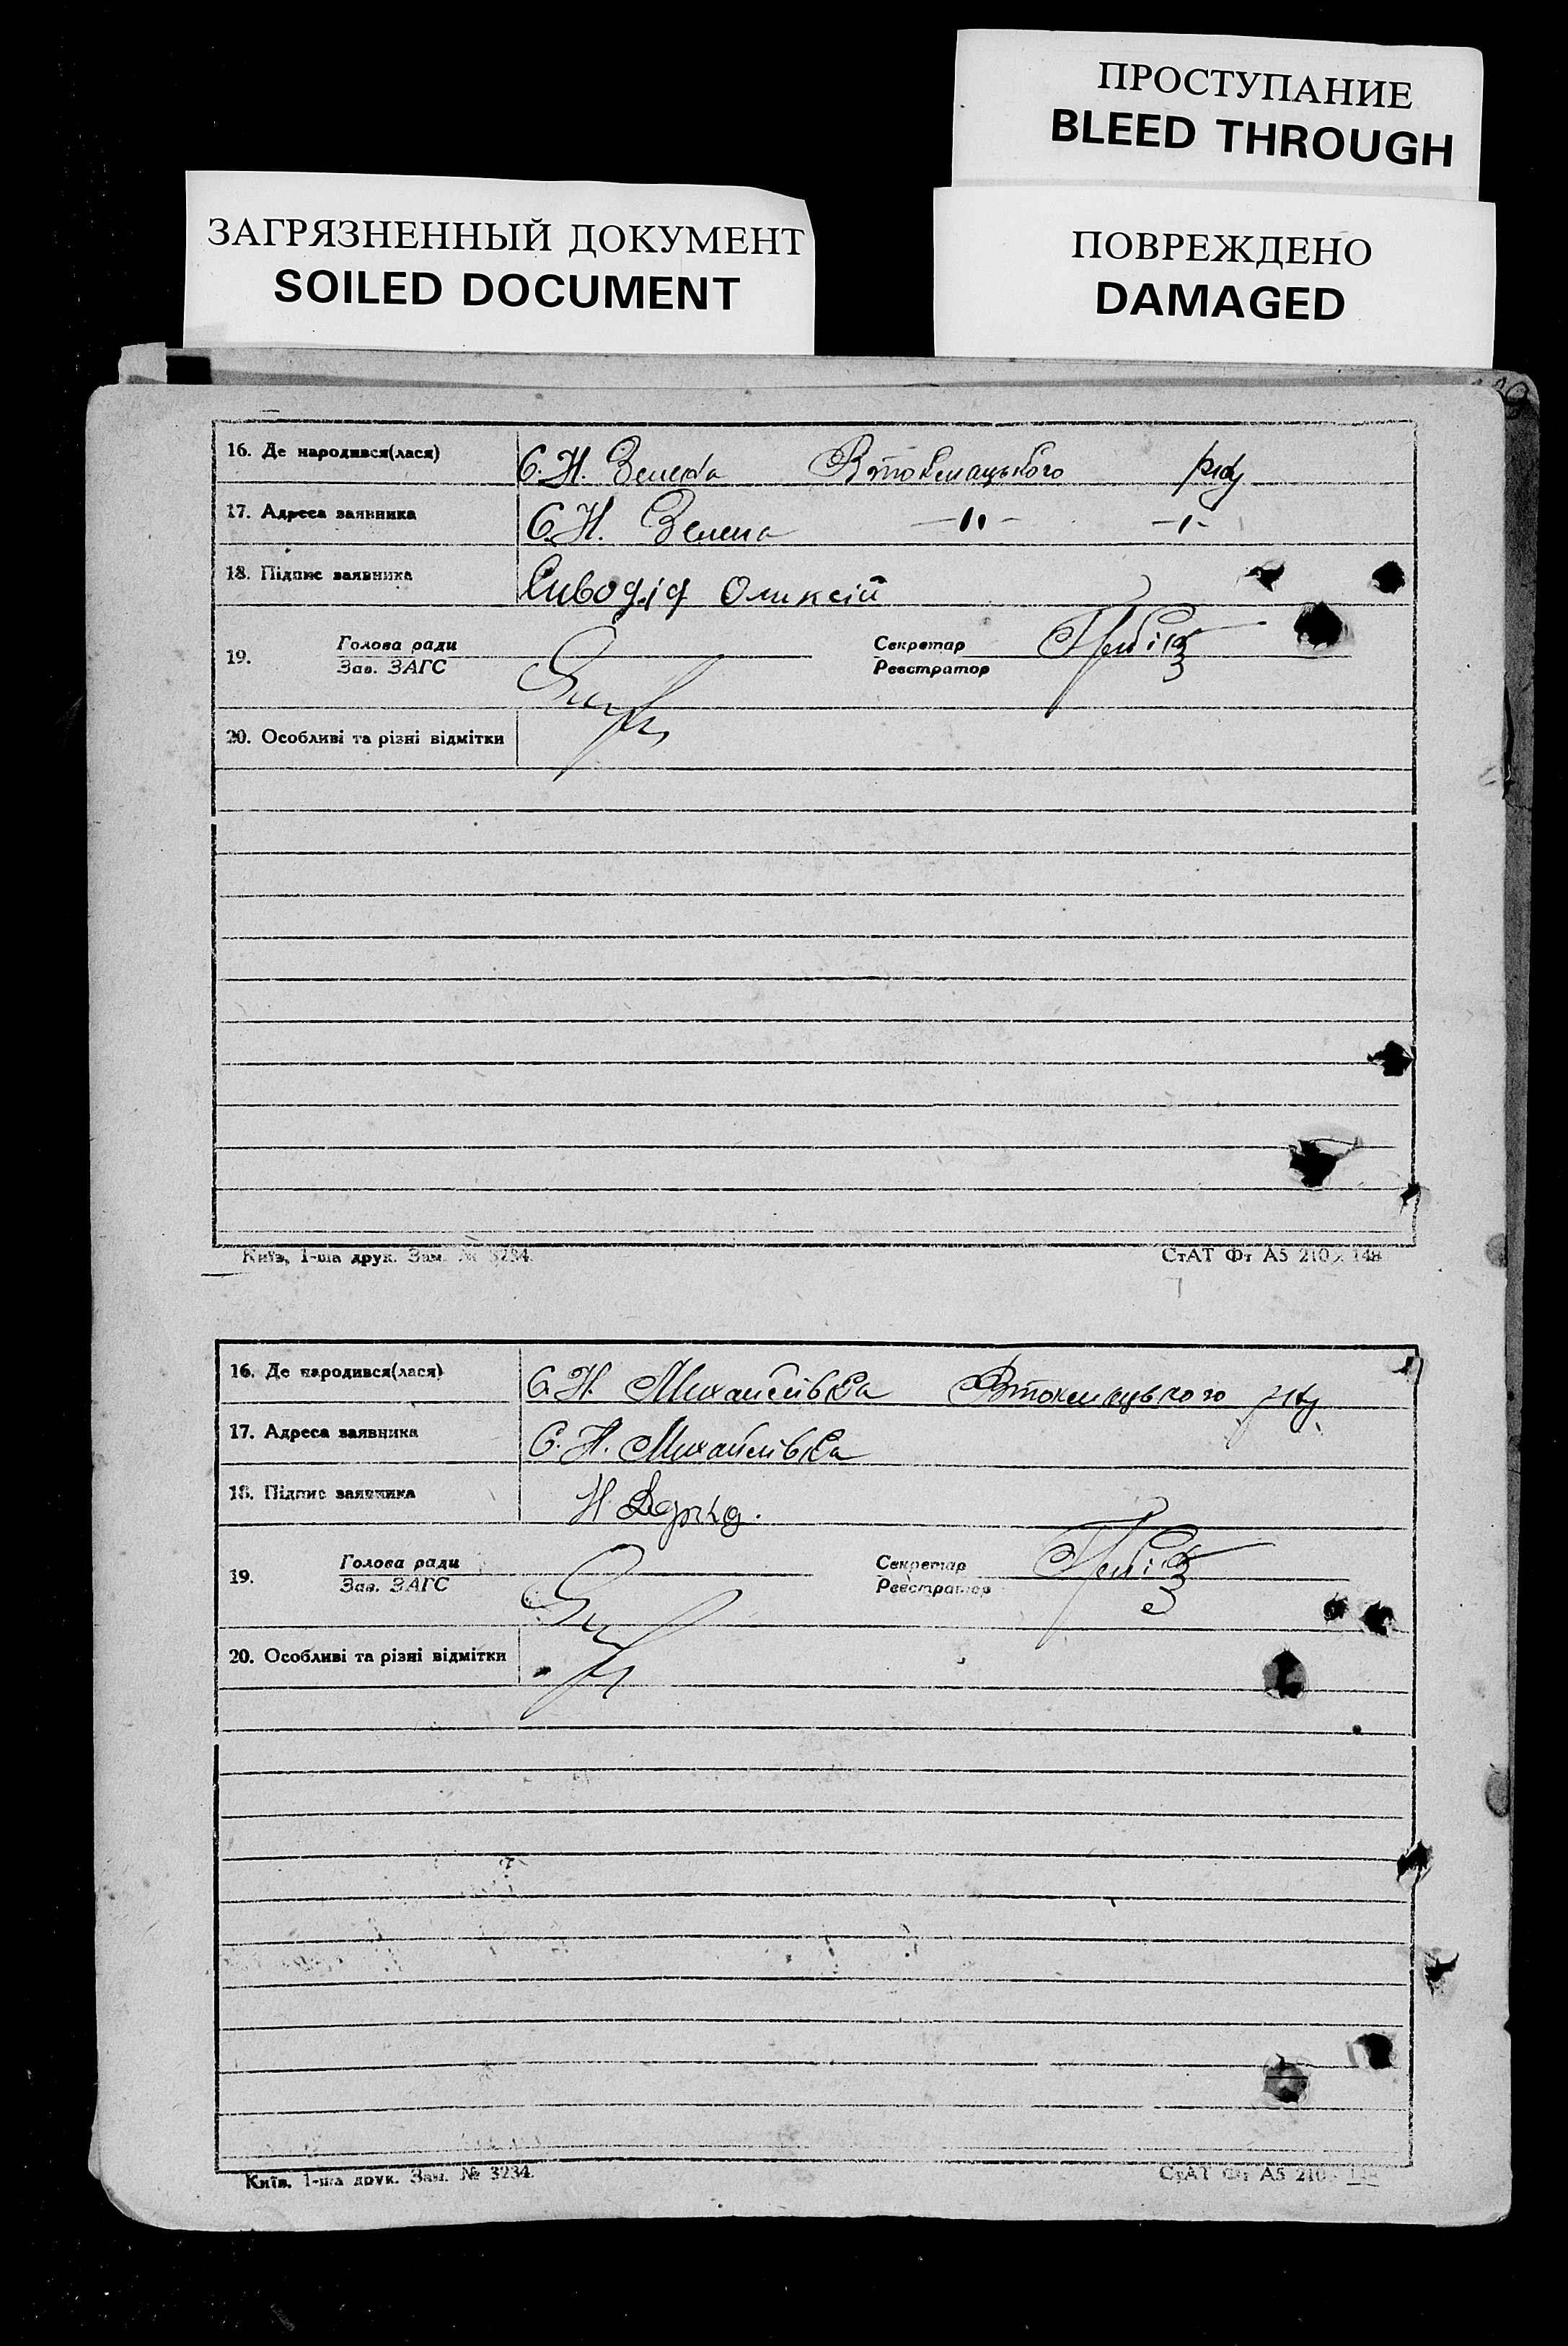 ПРОСТУПАНИЕ
BLEED THROUGH
ЗАГРЯЗНЕННЫЙ ДОКУМЕНТ
SOILED DOCUMENT
ПОВРЕЖДЕНО
DAMAGED
16. Де народився(лася) С. Н. Зелена Втокмацького р-ну
17. Адреса заявника С. Н. Зелена —〃— —〃—
18. Підпис заявника Сиводід Оликсій
19. Голова ради Секретар
Зав. ЗАГС Реєстратор
20. Особливі та різні відмітки
Київ, 1-ша друк. Зам. № 3234. СтАТ Фт А5 210 х 148
16. Де народився(лася) С. Н. Михайлівка Втокмацького р-ну
17. Адреса заявника С. Н. Михайлівка
18. Підпис заявника Н
19. Голова ради Секретар
Зав. ЗАГС Реєстратор
20. Особливі та різні відмітки
Київ, 1-ша друк. Зам. № 3234. СтАТ Фт А5 210 х 148